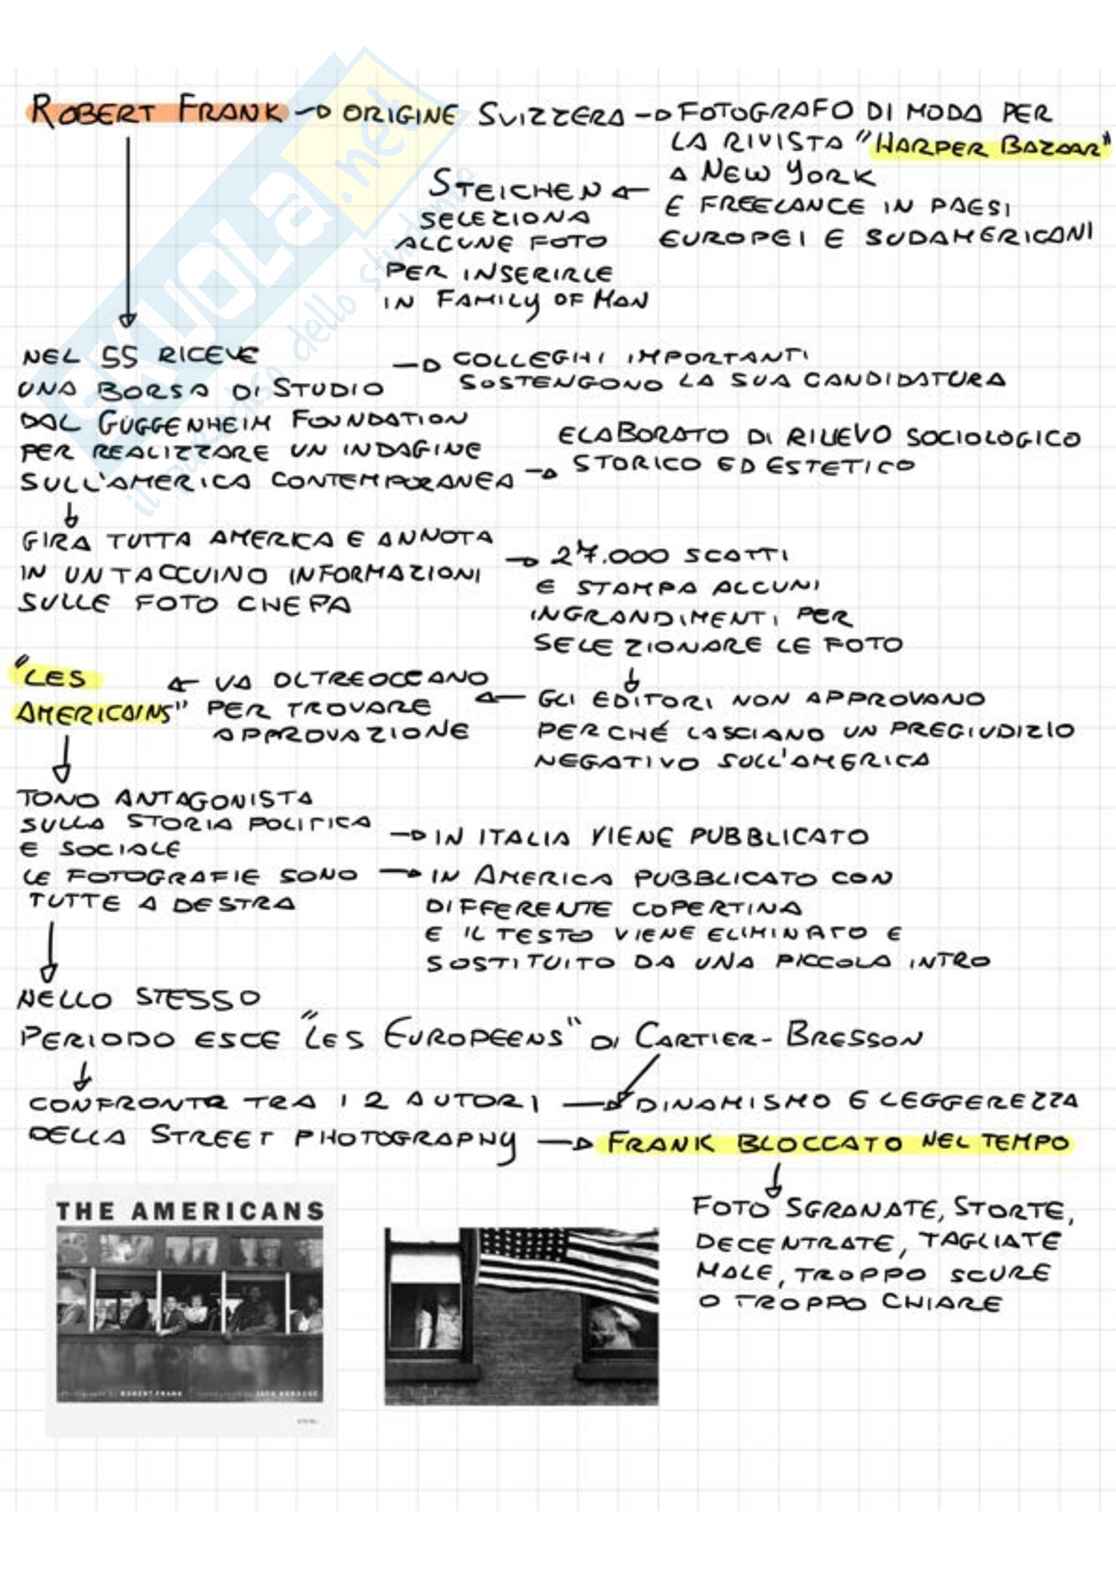 ROBERT FRANK → ORIGINE SVIZZERA → FOTOGRAFO DI MODA PER
LA RIVISTA "HARPER BAZAAR"
A NEW YORK
E FREELANCE IN PAESI
EUROPEI E SUDAMERICANI
STEICHEN ←
SELEZIONA
ALCUNE FOTO
PER INSERIRLE
IN FAMILY OF MAN
NEL 55 RICEVE
UNA BORSA DI STUDIO
DAL GUGGENHEIM FOUNDATION
PER REALIZZARE UN INDAGINE
SULL'AMERICA CONTEMPORANEA
→ COLLEGHI IMPORTANTI
SOSTENGONO LA SUA CANDIDATURA
ELABORATO DI RILIEVO SOCIOLOGICO
→ STORICO ED ESTETICO
GIRA TUTTA AMERICA E ANNOTA
IN UN TACCUINO INFORMAZIONI
SULLE FOTO CHE FA
→ 27.000 SCATTI
E STAMPA ALCUNI
INGRANDIMENTI PER
SELEZIONARE LE FOTO
← GLI EDITORI NON APPROVANO
PERCHÉ LASCIANO UN PREGIUDIZIO
NEGATIVO SULL'AMERICA
← VA OLTREOCEANO
PER TROVARE
APPROVAZIONE
"LES
AMERICAINS"
TONO ANTAGONISTA
SULLA STORIA POLITICA
E SOCIALE
LE FOTOGRAFIE SONO
TUTTE A DESTRA
→ IN ITALIA VIENE PUBBLICATO
→ IN AMERICA PUBBLICATO CON
DIFFERENTE COPERTINA
E IL TESTO VIENE ELIMINATO E
SOSTITUITO DA UNA PICCOLA INTRO
NELLO STESSO
PERIODO ESCE "LES EUROPEENS" DI CARTIER-BRESSON
CONFRONTO TRA I 2 AUTORI → DINAMISMO E LEGGEREZZA
DELLA STREET PHOTOGRAPHY → FRANK BLOCCATO NEL TEMPO
FOTO SGRANATE, STORTE,
DECENTRATE, TAGLIATE
MALE, TROPPO SCURE
O TROPPO CHIARE
THE AMERICANS
ROBERT FRANK
JACK KEROUAC
SKUOLA.net
il paradiso dello studente